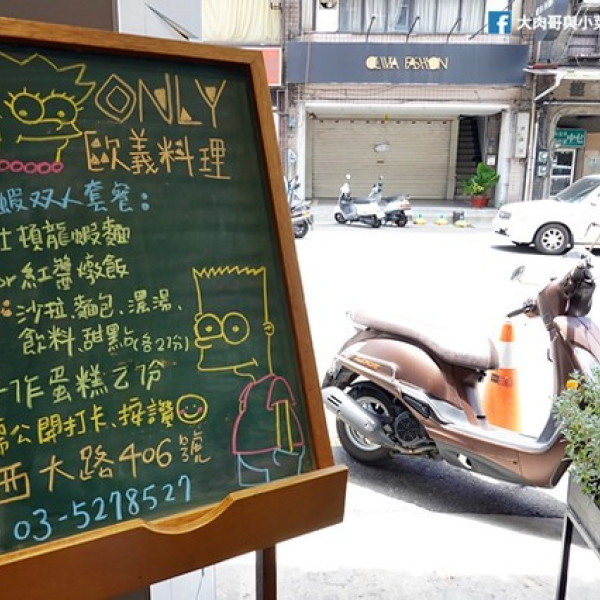 大肉哥與小菜
OLIVIA FASHION
ONLY
歐義料理
蝦双人套餐:
士頓龍蝦麵
or紅醬燉飯
沙拉、麵包、濃湯、
飲料、甜點(各2份)
作蛋糕2份
公開打卡、按讚
西大路406號
03-5278527